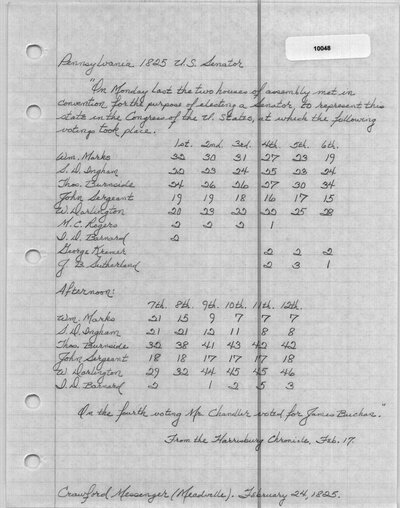 10048
Pennsylvania 1825 U.S. Senator
"On Monday last the two houses of assembly met in
convention for the purpose of electing a Senator, to represent this
state in the Congress of the U. States, at which the following
votings took place.
1st. 2nd. 3rd. 4th. 5th. 6th.
Wm. Marks 32 30 31 27 23 19
S. D. Ingham 22 23 24 25 23 24
Thos. Burnside 24 26 26 27 30 34
John Sergeant 19 19 18 16 17 15
W. Darlington 20 23 22 22 25 28
M. C. Rogers 2 2 2 1
I. D. Barnard 2
George Kremer 2 2 2
J. B. Sutherland 2 3 1
Afternoon:
7th. 8th. 9th. 10th. 11th. 12th.
Wm. Marks 21 15 9 7 7 7
S. D. Ingham 21 21 12 11 8 8
Thos. Burnside 32 38 41 43 42 42
John Sergeant 18 18 17 17 17 18
W. Darlington 29 32 44 45 45 46
I. D. Barnard 2 1 2 5 3
On the fourth voting Mr. Chandler voted for James Buchan."
From the Harrisburg Chronicle, Feb. 17.
Crawford Messenger (Meadville). February 24, 1825.